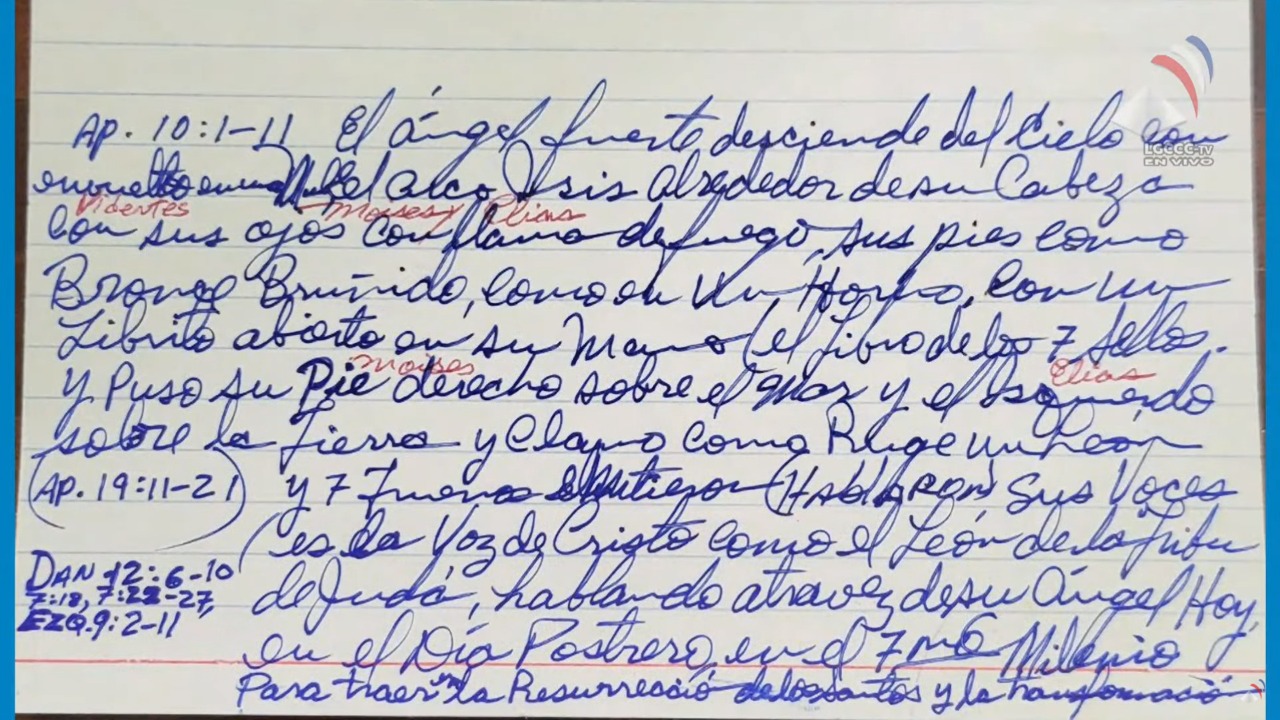 Ap. 10:1-11 El ángel fuerte desciende del Cielo con
LGCCC-TV
EN VIVO
envuelto en una Nube el arco Isis alrededor de su Cabeza
Videntes Moises y Elias
Con sus ojos con flama de fuego, sus pies como
Bronce Bruñido, como en un Horno, con un
Librito abierto en su Mano (el Libro de los 7 Sellos.
Moises Elias
Y Puso su Pie derecho sobre el Mar y el Isquierdo
sobre la Tierra y Clamo como Ruge un Leon
(Ap. 19:11-21) y 7 Truenos (Hablaron) Sus Voces
(es la Voz de Cristo como el León de la Tribu
DAN 12:6-10
7:18, 7:22-27,
EZQ. 9:2-11
de Juda, hablando atravez de su Ángel Hoy,
en el Día Postrero, en el 7mo Milenio
Para traer la Resurrecció de los Santos y la transformació